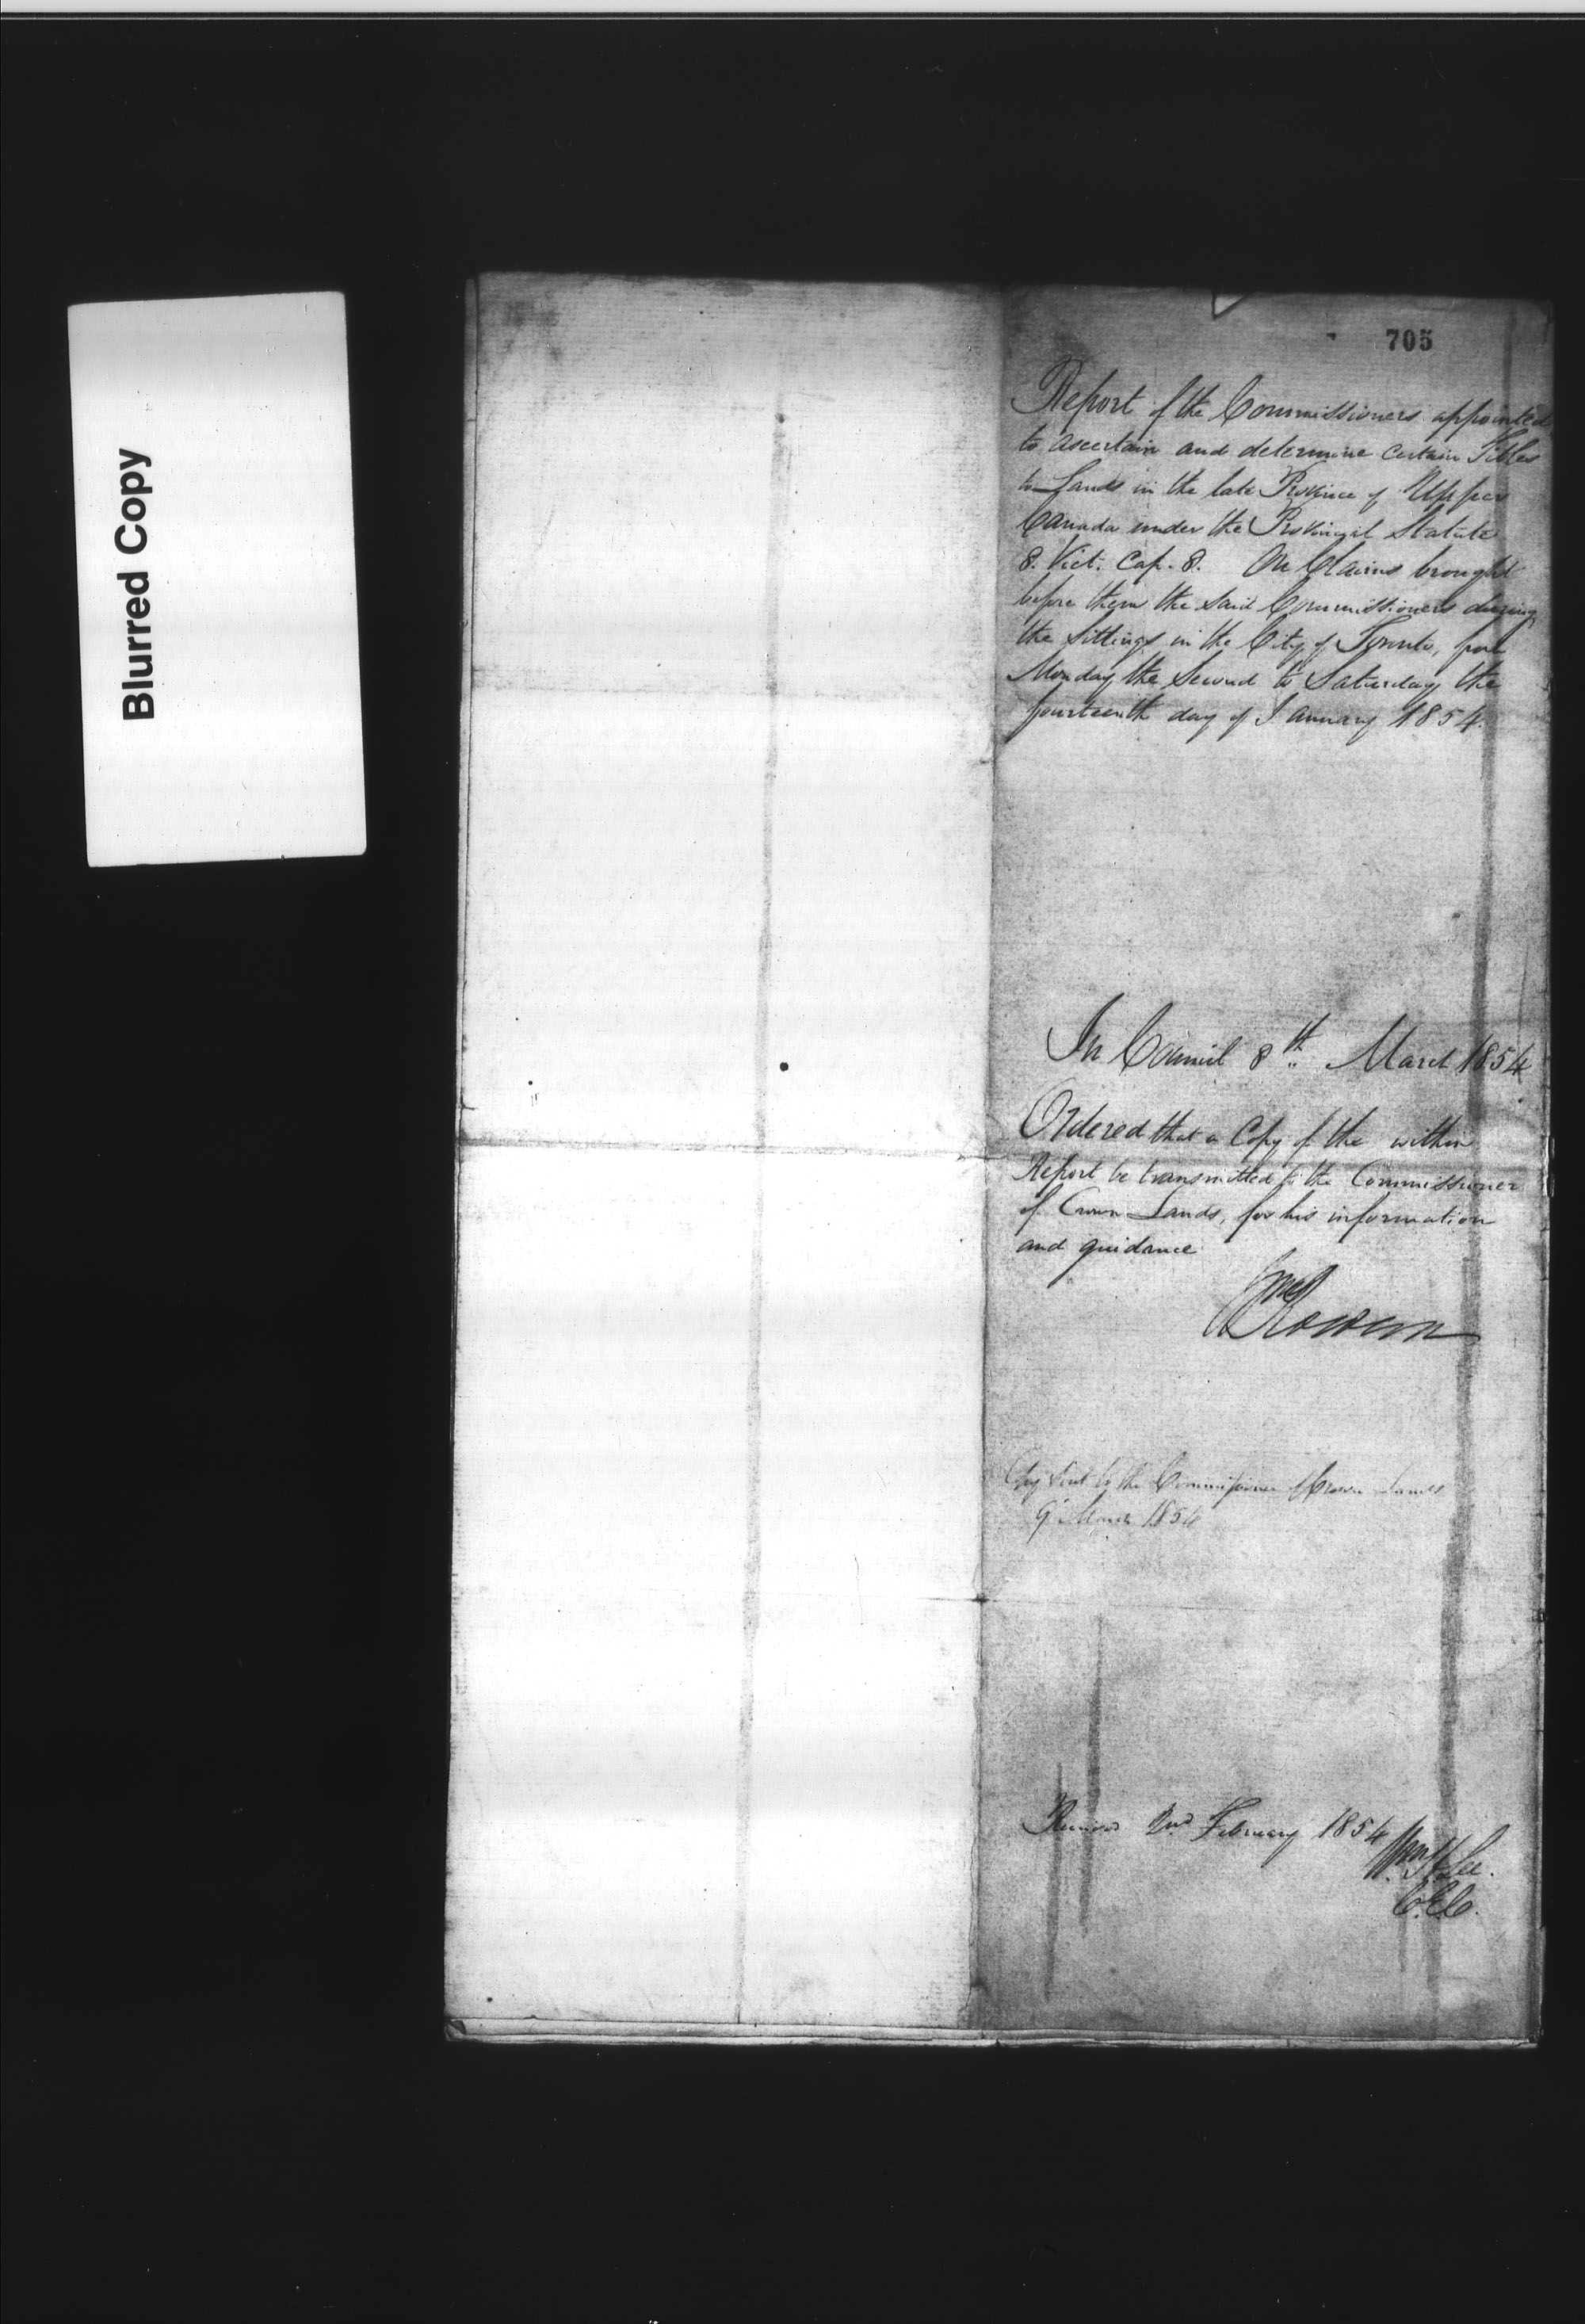 Blurred Copy
705
Report of the Commissioners appointed
to ascertain and determine certain Titles
to Lands in the late Province of Upper
Canada under the Provincial Statute
8. Vict. Cap. 8. On Claims brought
before them the said Commissioners during
the sittings in the City of Toronto, from
Monday the Second to Saturday the
fourteenth day of January 1854.
In Council 8th March 1854
Ordered that a Copy of the within
Report be transmitted to the Commissioner
of Crown Lands, for his information
and guidance
Wm Rowan
Copy sent to the Commissioner of Crown Lands
9 March 1854
Received 2nd February 1854
Wm H. Lee.
C.E.C.